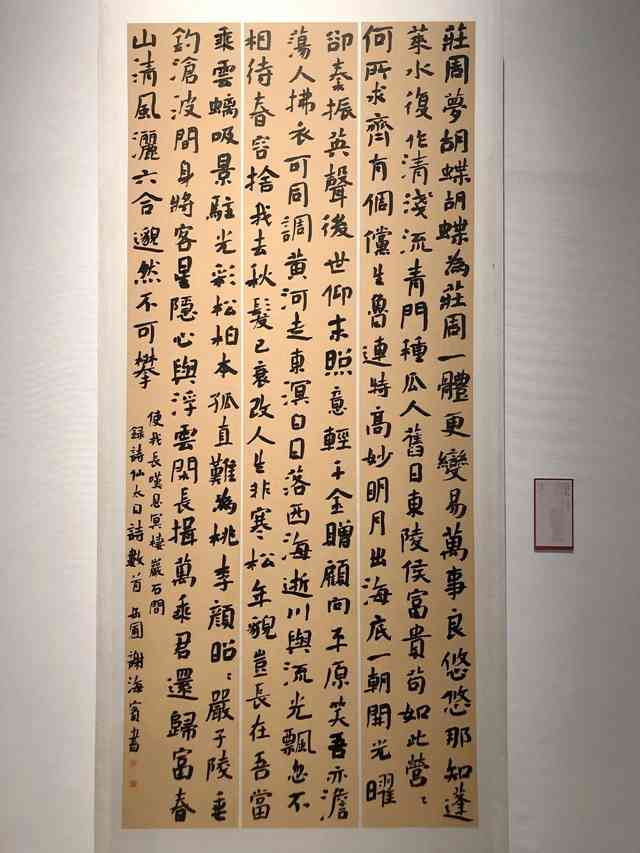 莊周夢胡蝶胡蝶為莊周一體更變易萬事良悠悠那知蓬
萊水復作清淺流青門種瓜人舊日東陵侯富貴苟如此營〻
何所求齊有倜儻生魯連特高妙明月出海底一朝開光曜
卻秦振英聲後世仰末照意輕千金贈顧向平原笑吾亦澹
蕩人拂衣可同調黃河走東溟白日落西海逝川與流光飄忽不
相待春容捨我去秋髮已衰改人生非寒松年貌豈長在吾當
乘雲螭吸景駐光彩松柏本孤直難為桃李顏昭〻嚴子陵垂
釣滄波間身將客星隱心與浮雲閑長揖萬乘君還歸富春
山清風灑六合邈然不可攀
使我長嘆息冥棲巖石間
錄詩仙太白詩數首 謝海賓書